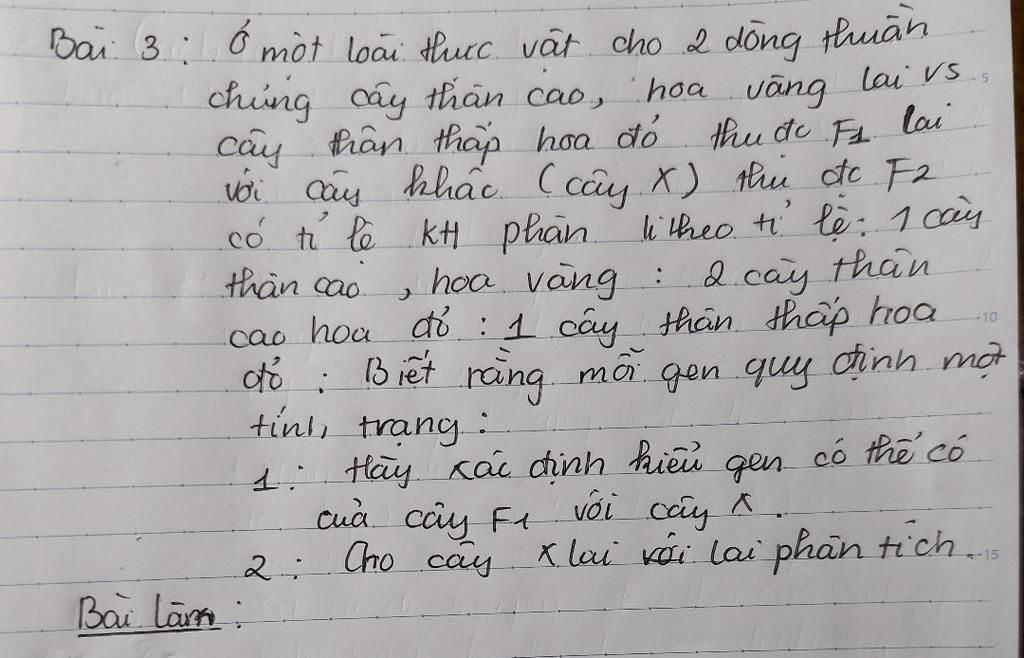 Bài 3: Ở một loài thực vật cho 2 dòng thuần
chủng cây thân cao, hoa vàng lai vs
cây thân thấp hoa đỏ thu đc F1 lai
với cây khác (cây X) thu đc F2
có tỉ lệ KH phân li theo tỉ lệ: 1 cây
thân cao, hoa vàng : 2 cây thân
cao hoa đỏ : 1 cây thân thấp hoa
đỏ : Biết rằng mỗi gen quy định một
tính trạng :
1: Hãy xác định kiểu gen có thể có
của cây F1 với cây X.
2: Cho cây X lai với lai phân tích.
Bài làm:
5
10
15